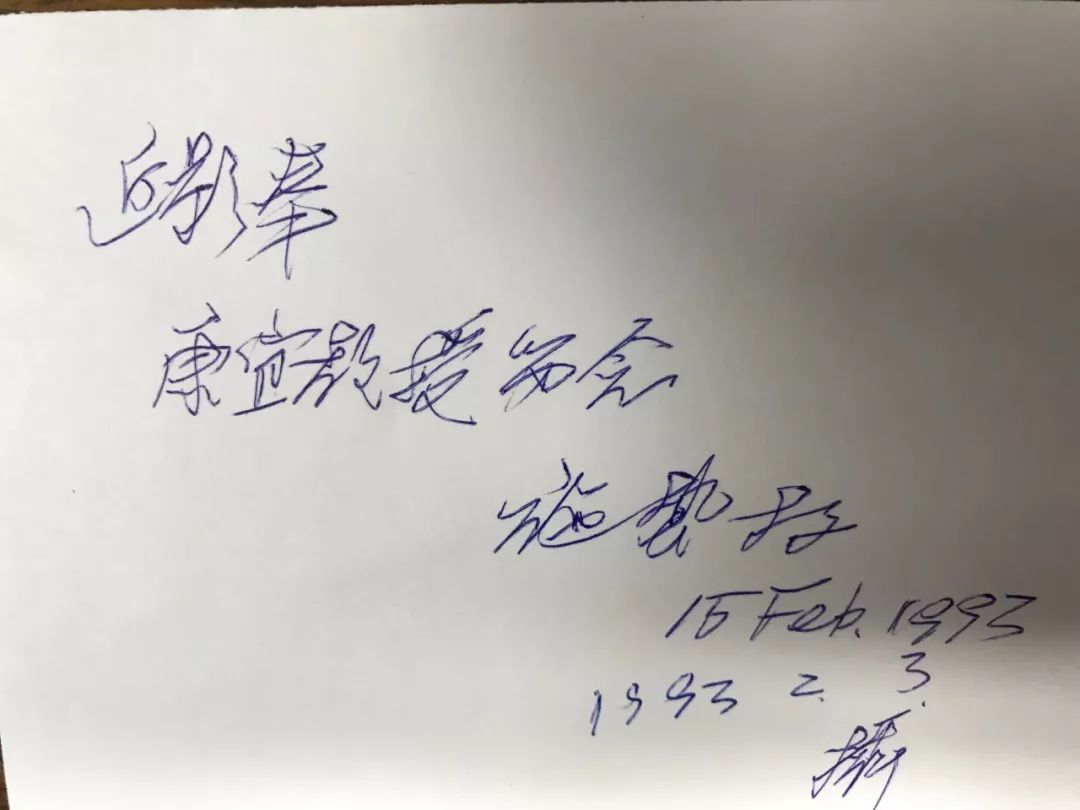 近影奉
康宜教授留念
施蟄存
15 Feb. 1993
1993 2. 3.
攝